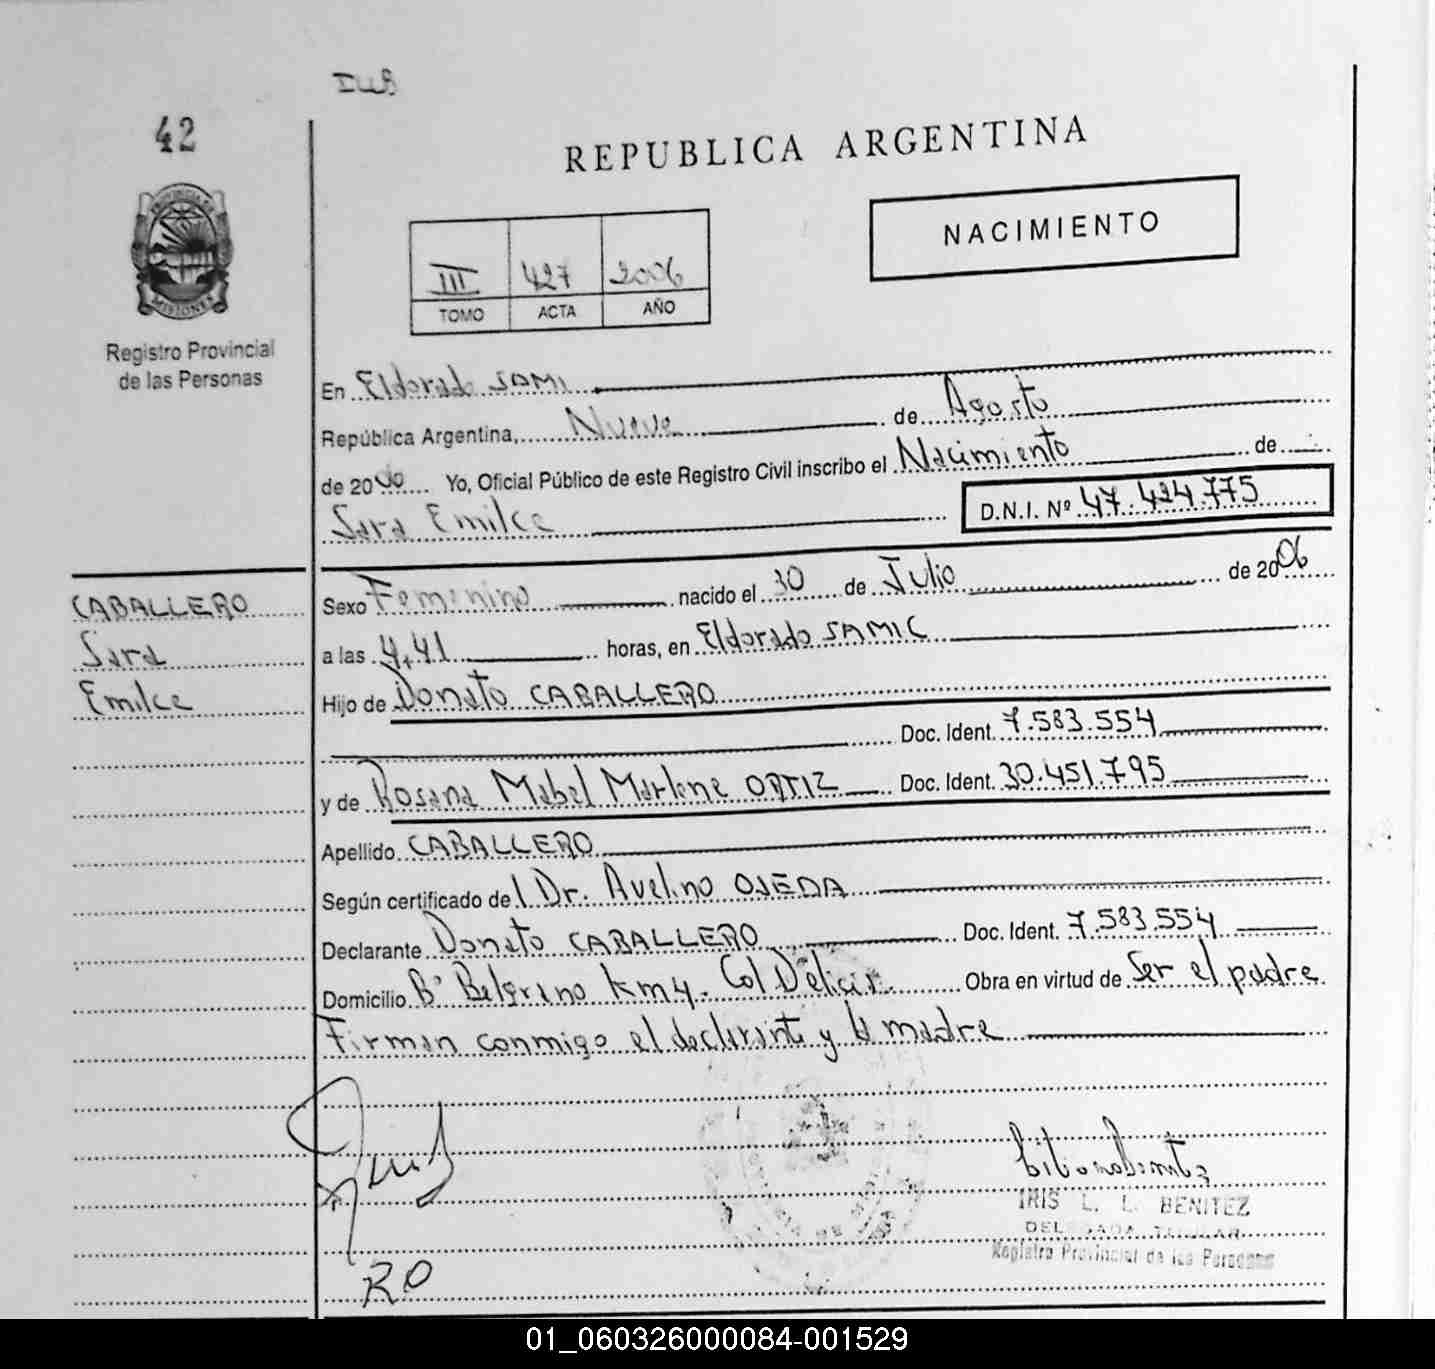 42
REPUBLICA ARGENTINA
NACIMIENTO
PROVINCIA DE
MISIONES
III 427 2006
TOMO ACTA AÑO
Registro Provincial
de las Personas
En Eldorado SAMI
República Argentina, Nueve de Agosto
de 2006 Yo, Oficial Público de este Registro Civil inscribo el Nacimiento de
Sara Emilce D.N.I. Nº 47.424.775
CABALLERO
Sara
Emilce
Sexo Femenino nacido el 30 de Julio de 2006
a las 4,41 horas, en Eldorado SAMIC
Hijo de Donato CABALLERO
Doc. Ident. 7.583.554
y de Rosana Mabel Marlene ORTIZ Doc. Ident. 30.451.795
Apellido CABALLERO
Según certificado del Dr. Avelino OJEDA
Declarante Donato CABALLERO Doc. Ident. 7.583.554
Domicilio Bº Belgrano km 4. Col Delicia. Obra en virtud de Ser el padre
Firman conmigo el declarante y la madre
RO
IRIS L. L. BENITEZ
DELEGADA TITULAR
Registro Provincial de las Personas
01_060326000084-001529